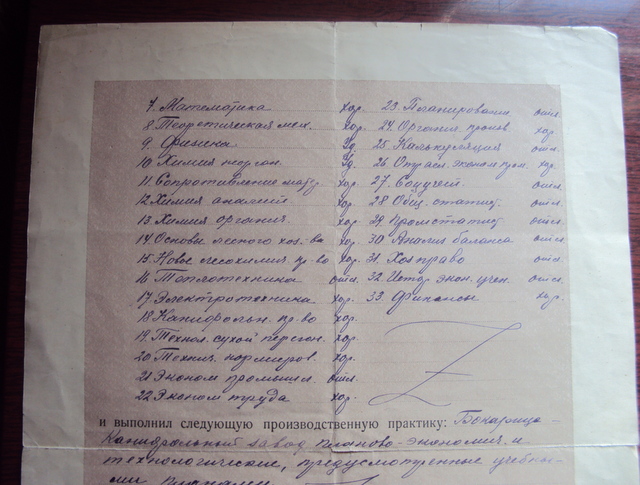 7. Математика хор.
8 Теоретическая мех. хор.
9. Физика Уд.
10. Химия неорган. Уд.
11. Сопротивление матер хор.
12. Химия аналит хор.
13. Химия органич. хор.
14. Основы лесного хоз-ва хор.
15. Новое лесохимич. пр-во хор.
16 Теплотехника отл.
17. Электротехника хор.
18. Канифольн. пр-во хор.
19. Технол. сухой перегон. хор.
20 Технич. нормиров. хор.
21 Эконом промышл. отл.
22 Эконом труда хор.
23. Планирование отл.
24. Организ произв хор.
25. Калькуляция отл.
26. Отрасл. эконом пром. хор.
27. Соцучет. отл.
28 Общ. статист. отл.
29 Промстатист отл.
30 Анализ баланса отл.
31. Хозправо отл.
32. Истор. экон. учен. отл.
33. Финансы хор.
и выполнил следующую производственную практику: Бокарица-
Канифольный завод планово-экономич. и
технологические, предусмотренные учебны-
ми планами